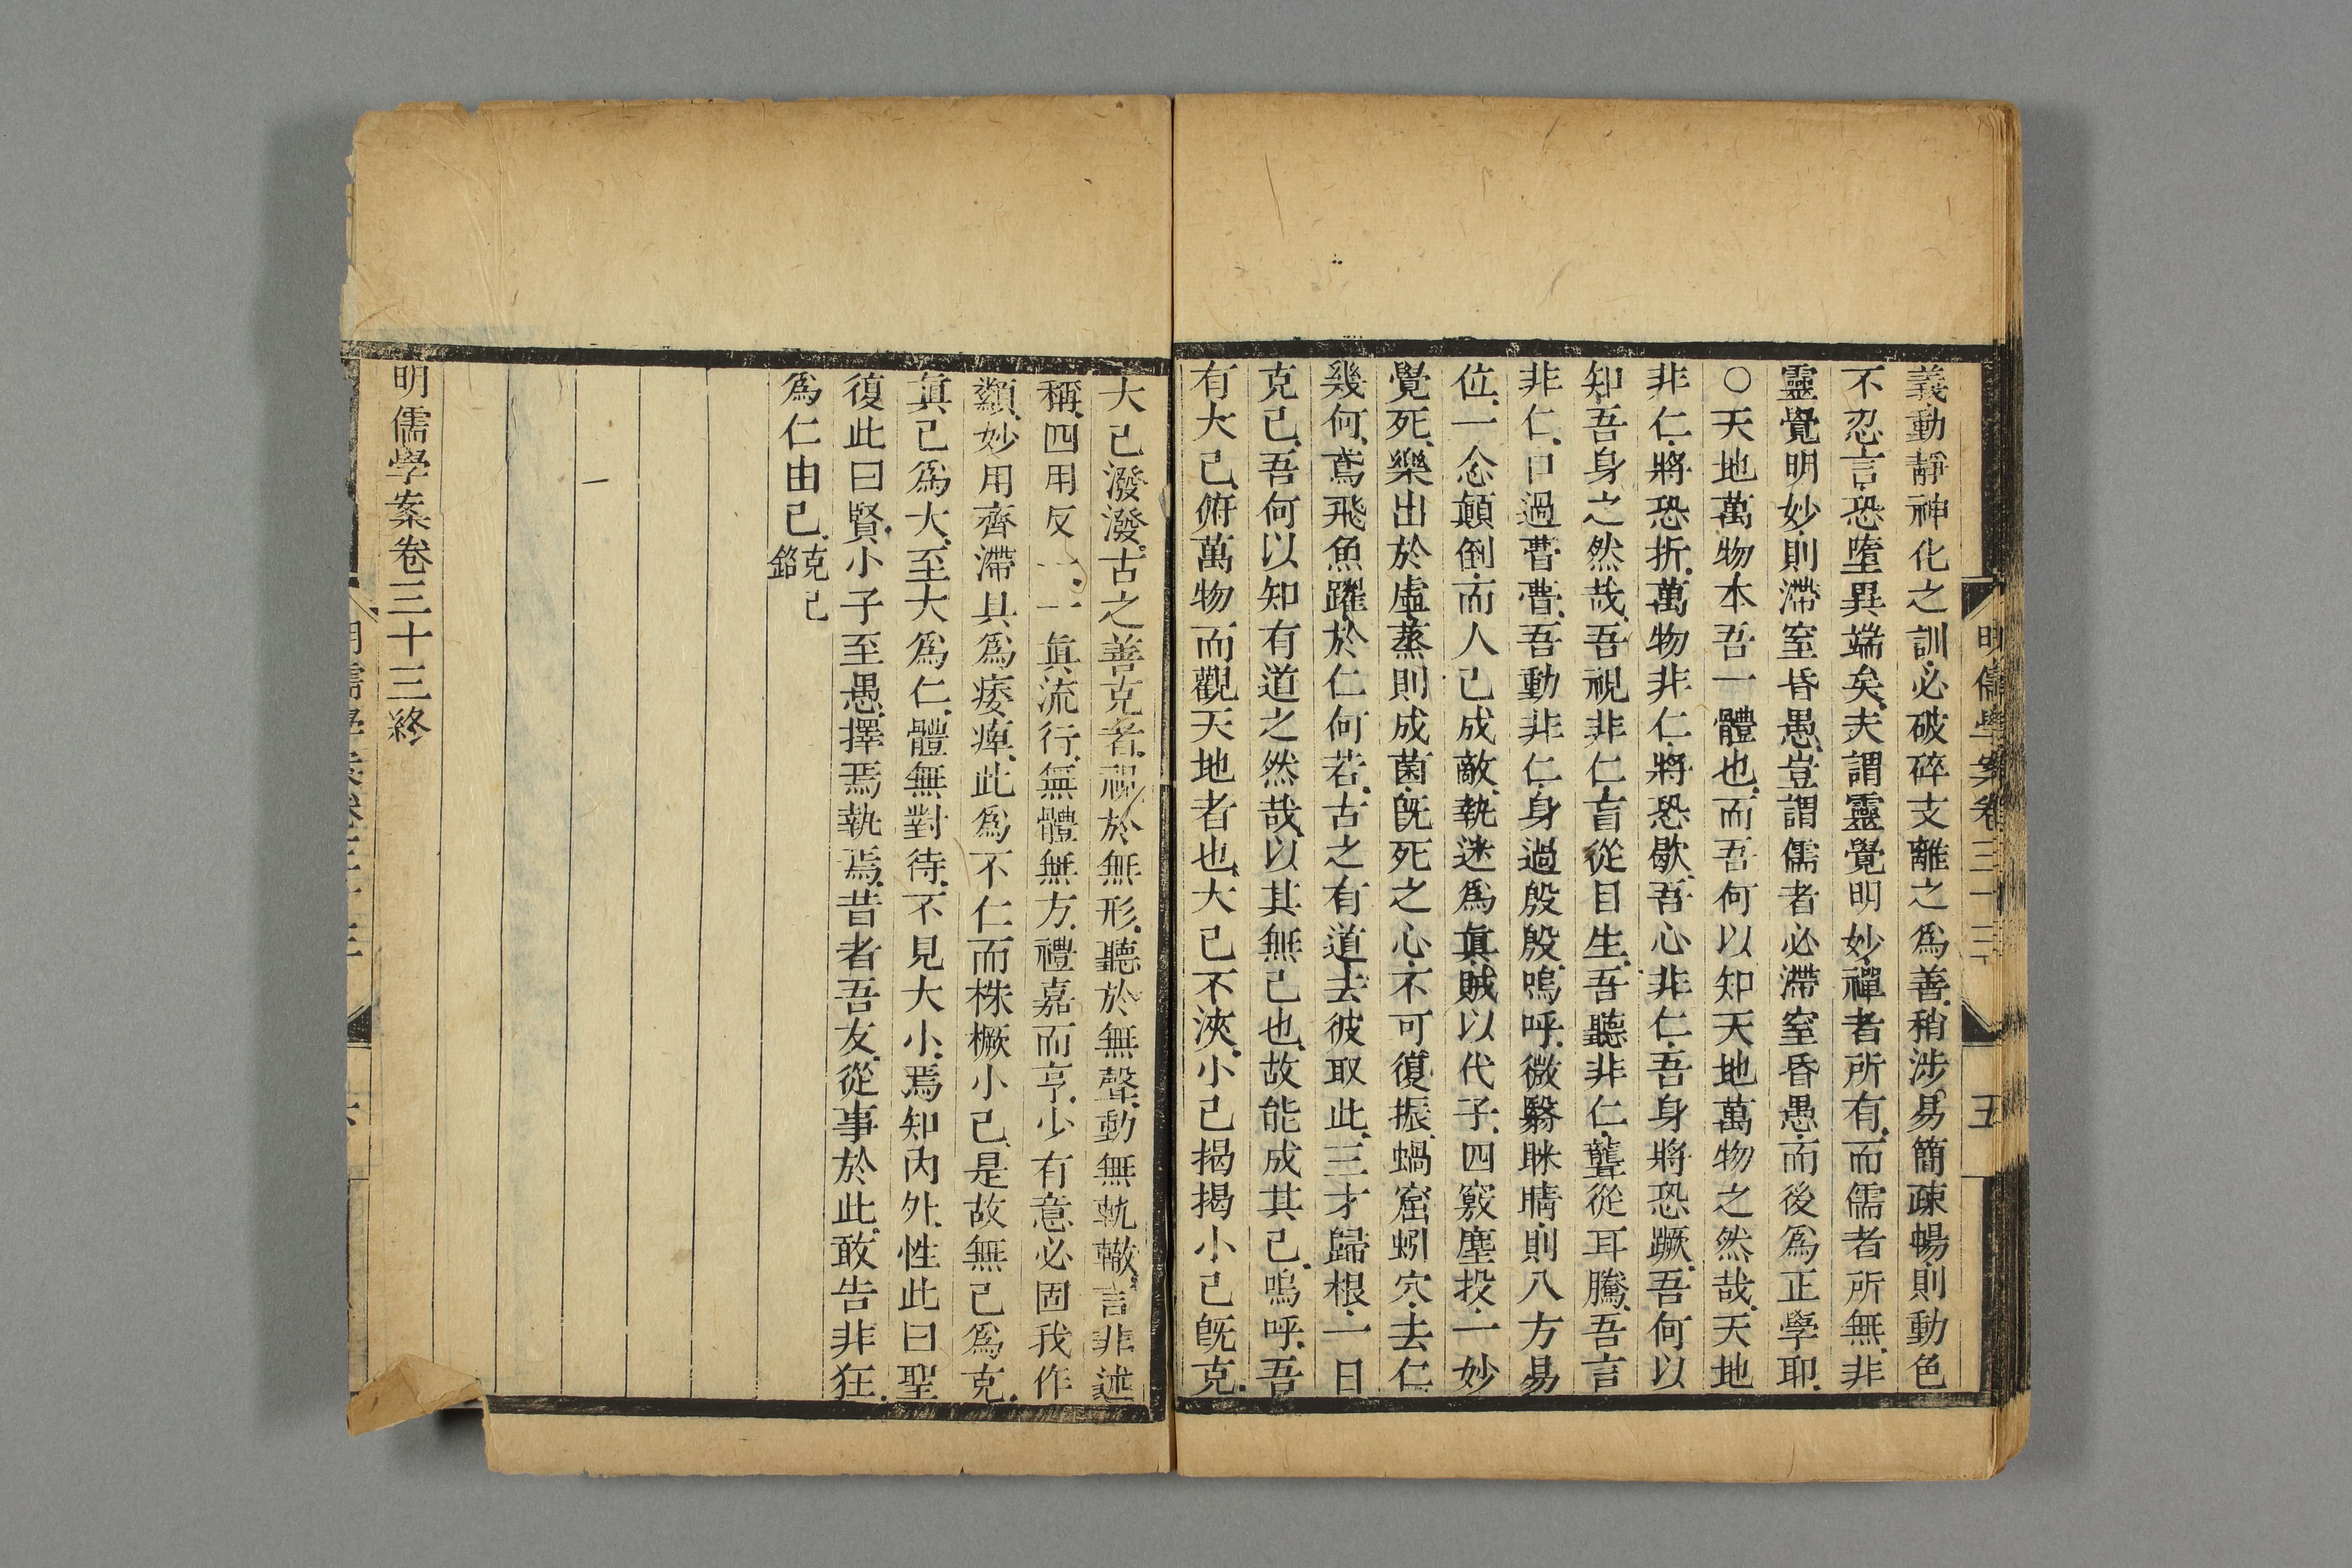 明儒學案卷三十三
五
義動靜神化之訓必破碎支離之爲善稍涉易簡疎暢則動色
不忍言恐墮異端矣夫謂靈覺明妙禪者所有而儒者所無非
靈覺明妙則滯窒昏愚豈謂儒者必滯窒昏愚而後爲正學耶
○天地萬物本吾一體也而吾何以知天地萬物之然哉天地
非仁將恐折萬物非仁將恐歇吾心非仁吾身將恐蹶吾何以
知吾身之然哉吾視非仁盲從目生吾聽非仁聾從耳騰吾言
非仁口過曹曹吾動非仁身過殷殷嗚呼微翳眯睛則八方易
位一念顛倒而人己成敵執迷爲眞賊以代子四竅塵投一妙
覺死樂出於虛蒸則成菌旣死之心不可復振蝸窟蚓穴去仁
幾何鳶飛魚躍於仁何若古之有道去彼取此三才歸根一日
克己吾何以知有道之然哉以其無己也故能成其己嗚呼吾
有大己俯萬物而觀天地者也大己不浹小己揭揭小己旣克
大己潑潑古之善克者視於無形聽於無聲動無軌轍言非述
稱四用反一一眞流行無體無方禮嘉而亨少有意必固我作
纇妙用齊滯具爲痿痺此爲不仁而株橛小己是故無己爲克
眞己爲大至大爲仁體無對待不見大小焉知內外性此曰聖
復此曰賢小子至愚擇焉執焉昔者吾友從事於此敢告非狂
爲仁由己克己銘
明儒學案卷三十三終